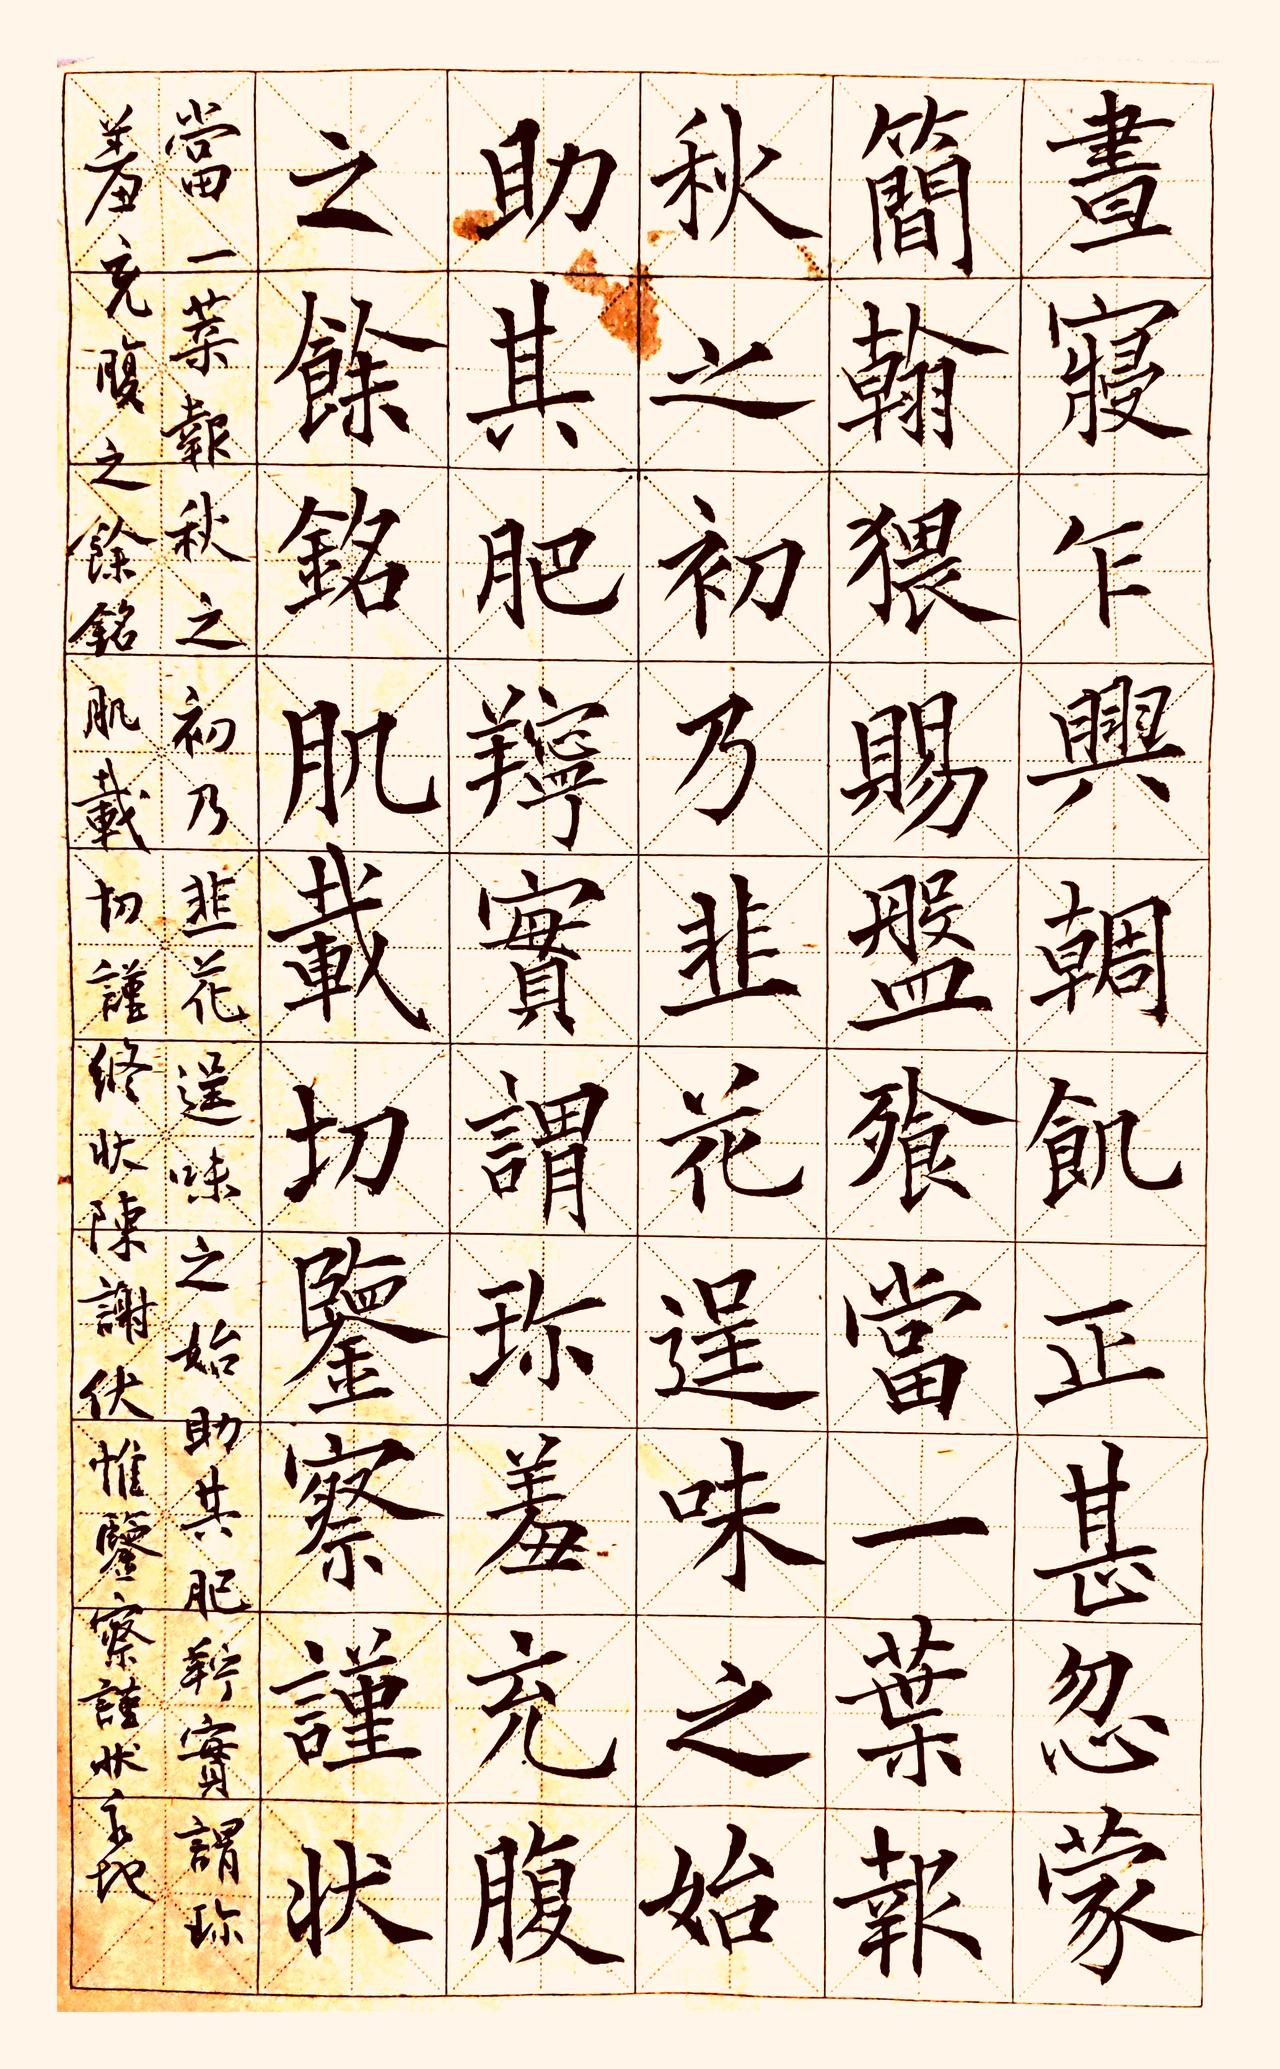 晝寢乍興朝飢正甚忽蒙
簡翰猥賜盤飧當一葉報
秋之初乃韭花逞味之始
助其肥羜實謂珎羞充腹
之餘銘肌載切鑒察謹狀
當一葉報秋之初乃韭花逞味之始助其肥羜實謂珎
羞充腹之餘銘肌載切謹修狀陳謝伏惟鑒察謹狀